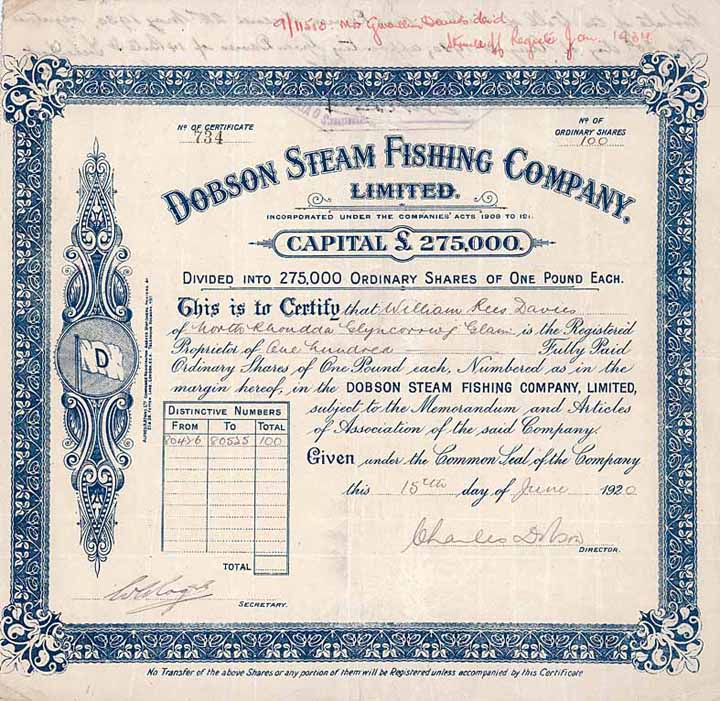 9/11518. Mr Gwallin Davies
Struck off Register Jan. 1934
No OF CERTIFICATE
734
No OF
ORDINARY SHARES
100
DOBSON STEAM FISHING COMPANY,
LIMITED.
INCORPORATED UNDER THE COMPANIES' ACTS 1908 TO 191
CAPITAL £ 275,000.
DIVIDED INTO 275,000 ORDINARY SHARES OF ONE POUND EACH.
This is to Certify that William Rees Davies
of North Rhondda Glyncorrwg Glam is the Registered
Proprietor of One hundred Fully Paid
Ordinary Shares of One Pound each, Numbered as in the
margin hereof, in the DOBSON STEAM FISHING COMPANY, LIMITED,
subject to the Memorandum and Articles
of Association of the said Company.
Given under the Common Seal of the Company
this 15th day of June 1920
D
DISTINCTIVE NUMBERS
FROM TO TOTAL
80426 80525 100
TOTAL
Charles Dobson
DIRECTOR.
SECRETARY.
No Transfer of the above Shares or any portion of them will be Registered unless accompanied by this Certificate